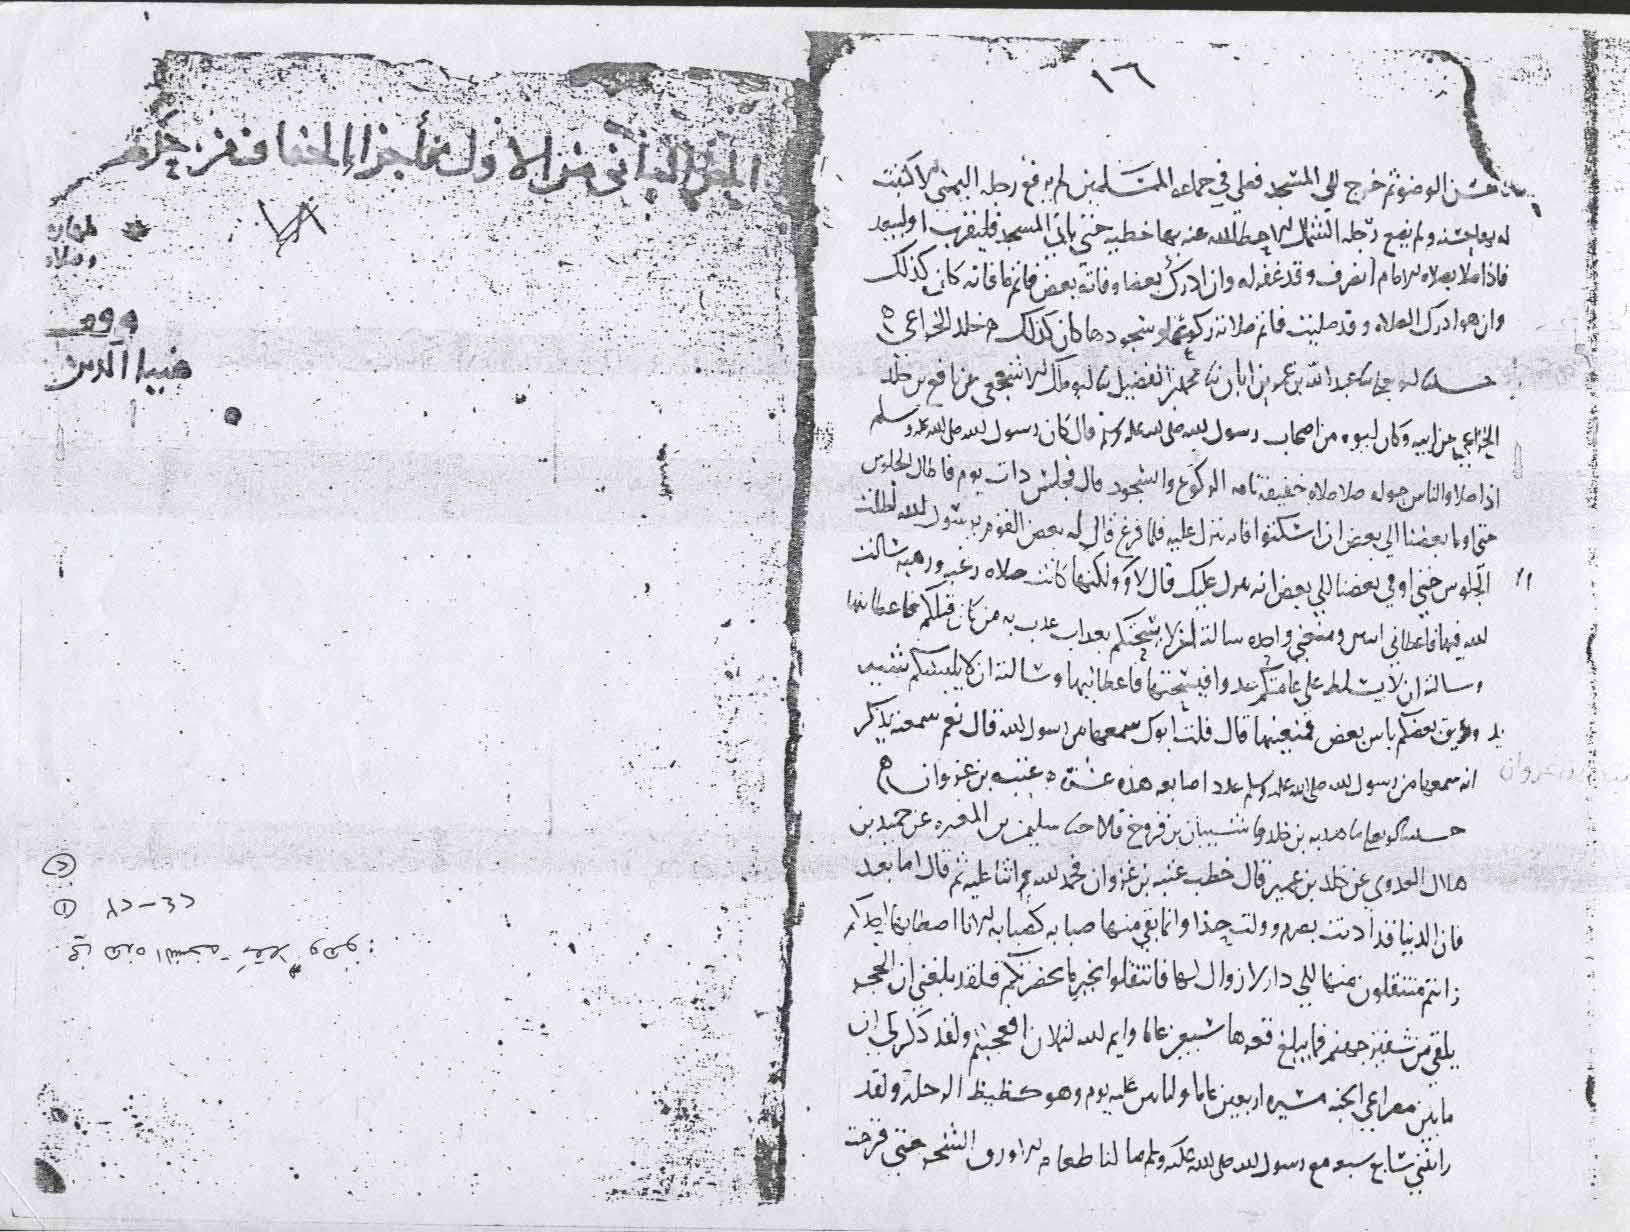 ١٦
حسن الوضوثم خرج الى المسجد فصلى في جماعه المسلمين لم يرفع رجله اليمنى الا كتبت
له بها حسنه ولم يضع رجله الشمال الا حط الله عنه بها خطيه حتى ياتي المسجد فليقرب او ليبعد
فاذا صلا بصلاه الامام انصرف وقد غفر له وان ادرك بعضا وفاته بعض فاتم ما فاته كان كذلك
وان هو ادرك الصلاه وقد صليت فاتم صلاته ركوعها وسجودها كان كذلك خلد الخزاعي ه
حدثنا ابو يعلى عبد الله بن عمر بن ابان نا محمد بن الفضيل نا ابو مالك الاشجعي عن نافع بن خلد
الخزاعي عن ابيه وكان ابوه من اصحاب رسول الله صلى الله عليه وسلم قال كان رسول الله صلى الله عليه وسلم
اذا صلا والناس حوله صلا صلاه خفيفه تامه الركوع والسجود قال فجلس دات يوم فاطال الجلوس
حتى اوما بعضنا الى بعض ان اسكتوا فانه ينزل عليه فلما فرغ قال له بعض القوم يرسول الله اطلت
الجلوس حتى اومى بعضنا الى بعض انه ينزل عليك قال لا ولكنها كانت صلاه رغبه ورهبه سالت
الله فيها فاعطاني اثنتين ومنعني واحده سالته ان لا يسحتكم بعداب عدب به من كان قبلكم فاعطانيها
وسالته ان لا يسلط على عامتكم عدوا فيستبيحها فاعطانيها وسالته ان لا يلبسكم شيعا
ويديق بعضكم باس بعض فمنعنيها قال قلت ابوك سمعها من رسول الله قال نعم سمعته يذكر
انه سمعها من رسول الله صلى الله عليه وسلم عدد اصابعه هذه عشره ه عتبه بن غزوان
حدثنا ابو يعلى نا هدبه بن خلد وشيبان بن فروخ قالا حدثنا سليمن بن المغيره عن حميد بن
هلال العدوي عن خلد بن عمير قال خطب عتبه بن غزوان فحمد الله واثنا عليه ثم قال اما بعد
فان الدنيا قد ادنت بصرم وولت حذا وانما بقي منها صبابه كصبابه الانا اصطبها احدكم
وانتم منتقلون منها الى دار لا زوال لها فانتقلوا بخير ما بحضرتكم فلقد بلغني ان الحجر
يلقى من شفير جهنم فما يبلغ قعرها سبعين عاما وايم الله لتملان افعجبتم ولقد ذكر لي ان
ما بين مصراعي الجنه مسيره اربعين عاما وليات عليه يوم وهو كظيظ الزحام ولقد
رايتني سابع سبعه مع رسول الله صلى الله عليه وسلم ما لنا طعام الا ورق الشجر حتى قرحت
الجزء الثاني من الاول
وقف
ضيا الدين
في هذه النسخة
① ٤٣-٤٢
②